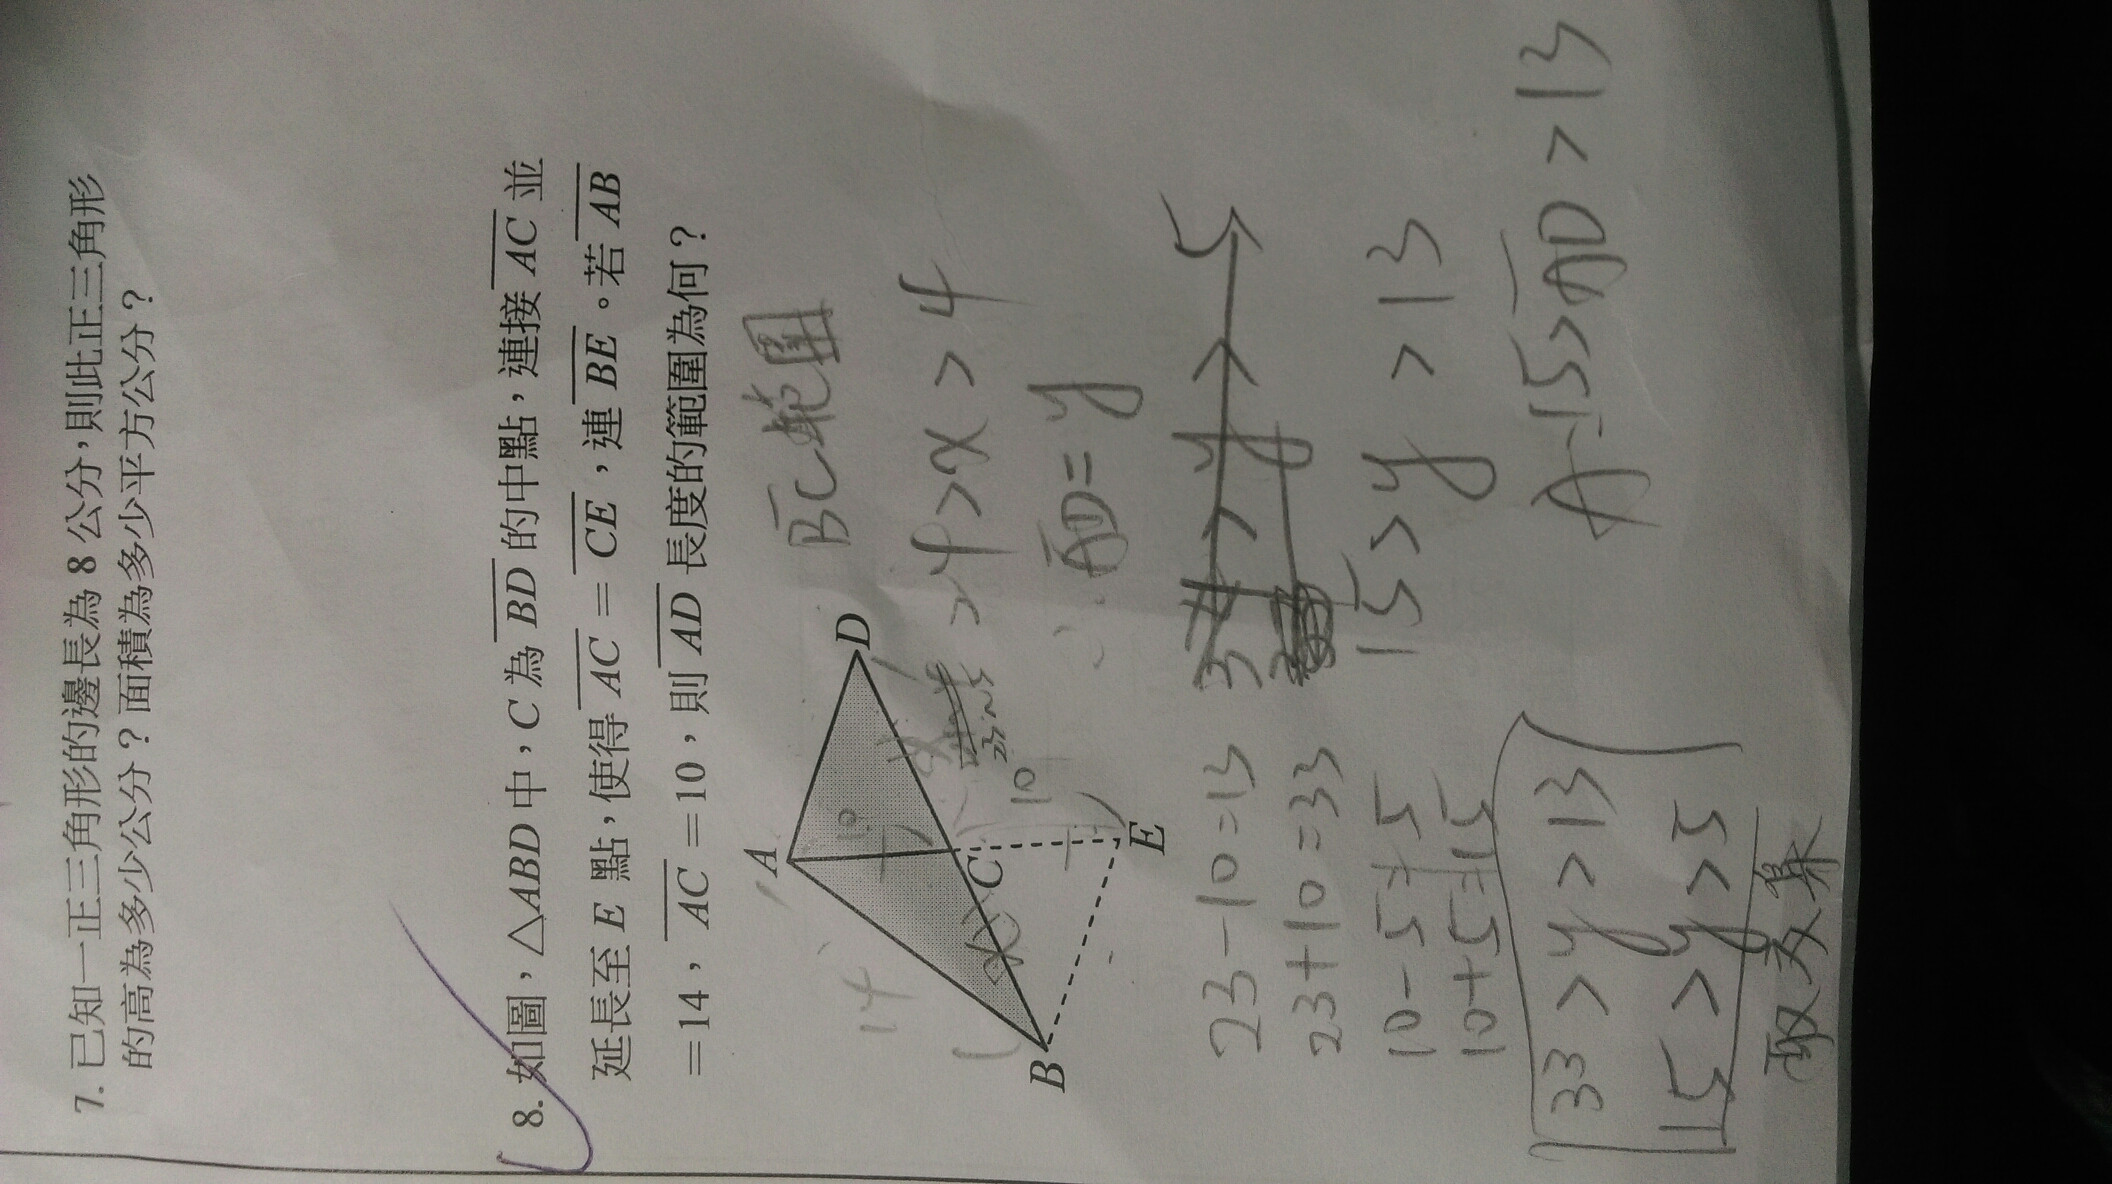 7. 已知一正三角形的邊長為 8 公分，則此正三角形
的高為多少公分？面積為多少平方公分？
8. 如圖，△ABD 中，C 為 BD 的中點，連接 AC 並
延長至 E 點，使得 AC = CE，連 BE。若 AB
= 14，AC = 10，則 AD 長度的範圍為何？
BC範圍
A
D
C
B
E
14
10
10
x
24>x>4
AD=y
23-10=13
23+10=33
10-5=5
10+5=15
15>y>13
33>y>13
15>y>5
取交集
A:15>AD>13